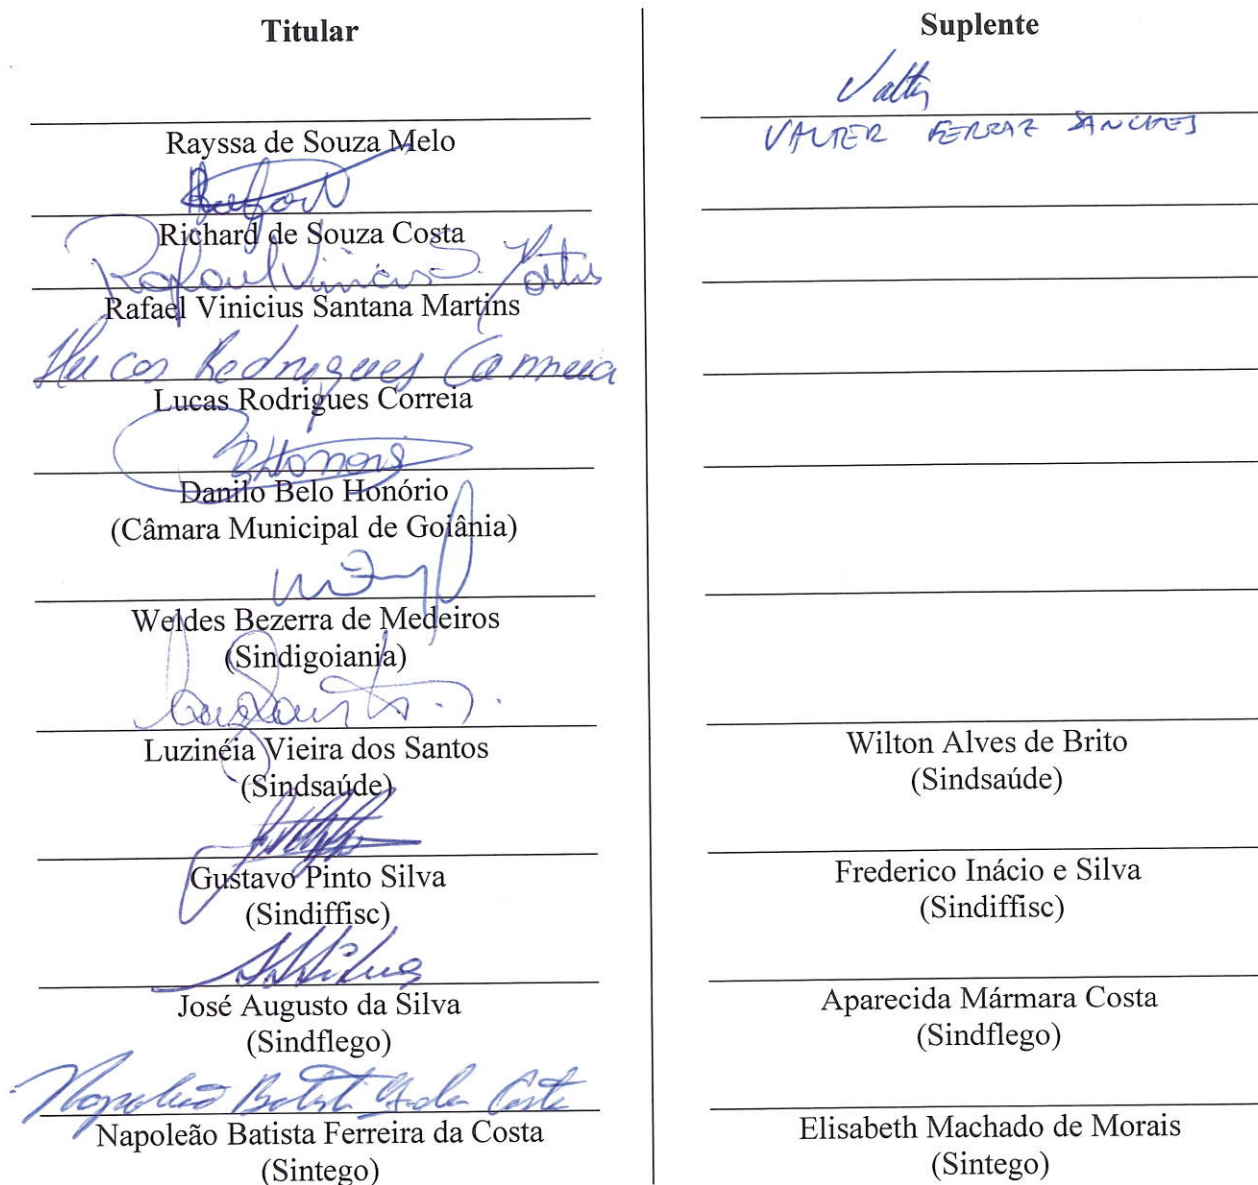 Titular
Rayssa de Souza Melo
Richard de Souza Costa
Rafael Vinicius S. Martins
Rafael Vinicius Santana Martins
Lucas Rodrigues Correia
Lucas Rodrigues Correia
Danilo Belo Honório
(Câmara Municipal de Goiânia)
Weldes Bezerra de Medeiros
(Sindigoiania)
Luzinéia Vieira dos Santos
(Sindsaúde)
Gustavo Pinto Silva
(Sindiffisc)
José Augusto da Silva
(Sindflego)
Napoleão Batista
Napoleão Batista Ferreira da Costa
(Sintego)
Suplente
Valter
VALTER FERRAZ SANCHES
Wilton Alves de Brito
(Sindsaúde)
Frederico Inácio e Silva
(Sindiffisc)
Aparecida Mármara Costa
(Sindflego)
Elisabeth Machado de Morais
(Sintego)